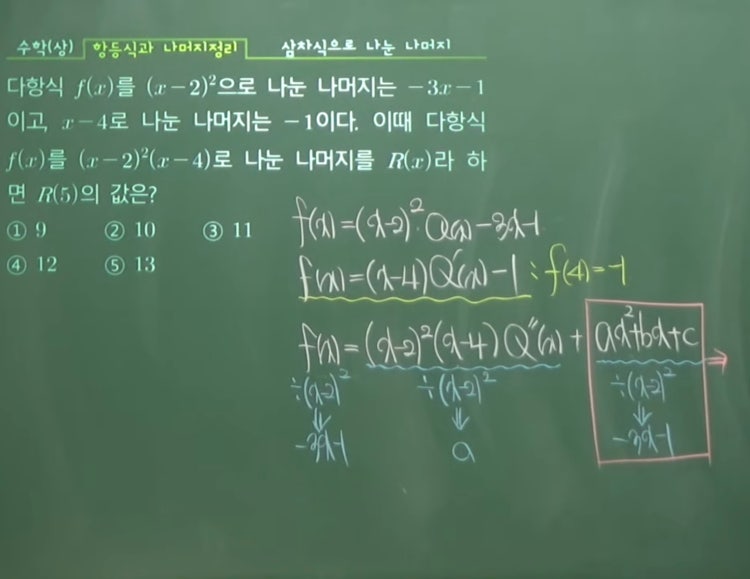 수학(상) 항등식과 나머지정리 삼차식으로 나눈 나머지
다항식 f(x)를 (x−2)²으로 나눈 나머지는 −3x−1
이고, x−4로 나눈 나머지는 −1이다. 이때 다항식
f(x)를 (x−2)²(x−4)로 나눈 나머지를 R(x)라 하
면 R(5)의 값은?
① 9 ② 10 ③ 11
④ 12 ⑤ 13
f(x)=(x-2)²Q(x)-3x-1
f(x)=(x-4)Q'(x)-1 : f(4)=-1
f(x)=(x-2)²(x-4)Q''(x)+ax²+bx+c ⇒
÷(x-2)² ÷(x-2)² ÷(x-2)²
⇓ ⇓ ⇓
-3x-1 0 -3x-1